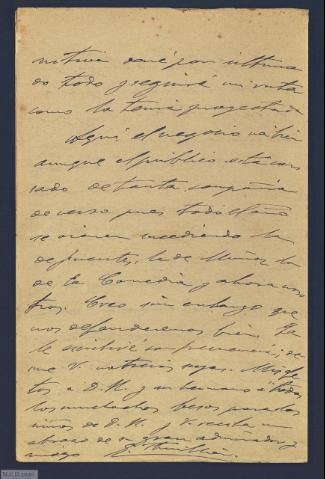 daré por ultima
do todo y seguiré mi ruta
como la tenia proyectada
Aqui el negocio va bien
aunque el publico está can
sado de tanta compañia
de verso pues todo el año
se vienen sucediendo la
de Fuentes, la de Muñoz, la
de La Comedia y ahora noso
tros. Creo sin embargo que
nos defenderemos bien. Ya
le escribiré con frecuencia; de
me V. noticias suyas.
tos a D. H. y su hermano á todos
los muchachos besos para los
niños de D. H. y V. reciba un
abrazo de su gran admirador y
amigo
M.C.D. 2020